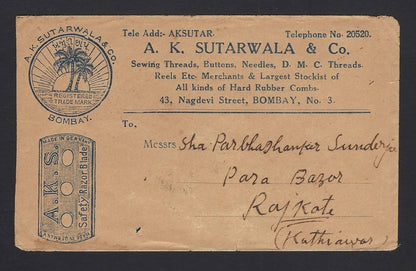 A. K. SUTARWALA & CO.
REGISTERED
TRADE MARK
BOMBAY.
Tele Add:- AKSUTAR. Telephone No. 20520.
A. K. SUTARWALA & Co.
Sewing Threads, Buttons, Needles, D. M. C. Threads.
Reels Etc- Merchants & Largest Stockist of
All kinds of Hard Rubber Combs-
43, Nagdevi Street, BOMBAY, No. 3.
To,
Messrs Sha Parbhashanker Sunderjee
Para Bazor
Rajkote
(Kathiawar)
MADE IN GERMANY
A. K. S.
Safety Razor Blade